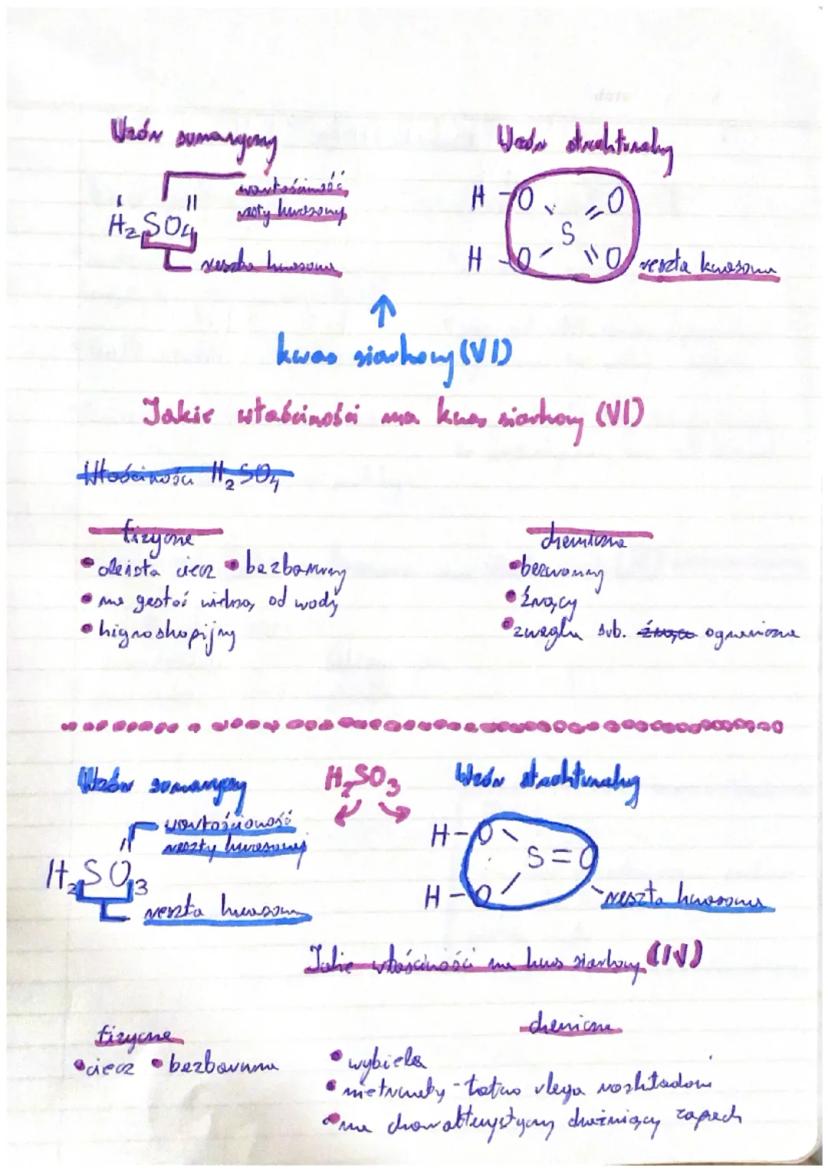 Wzór sumaryczny
Wzór strukturalny
wartościowość
reszty kwasowej
I II
H₂SO₄
reszta kwasowa
H - O O
S
H - O O
reszta kwasowa
↑
kwas siarkowy (VI)
Jakie właściwości ma kwas siarkowy (VI)
Właściwości H₂SO₄
fizyczne
• oleista ciecz • bezbarwny
• ma gęstość większą od wody
• higroskopijny
chemiczne
• bezwonny
• żrący
• zwęgla sub. żrąco ograniczne
Wzór sumaryczny
H₂SO₃
Wzór strukturalny
wartościowość
reszty kwasowej
II
H₂SO₃
reszta kwasowa
H - O
S = O
H - O
reszta kwasowa
Jakie właściwości ma kwas siarkowy (IV)
fizyczne
• ciecz • bezbarwna
chemiczne
• wybiela
• nietrwały - łatwo ulega rozkładowi
• ma charakterystyczny drażniący zapach